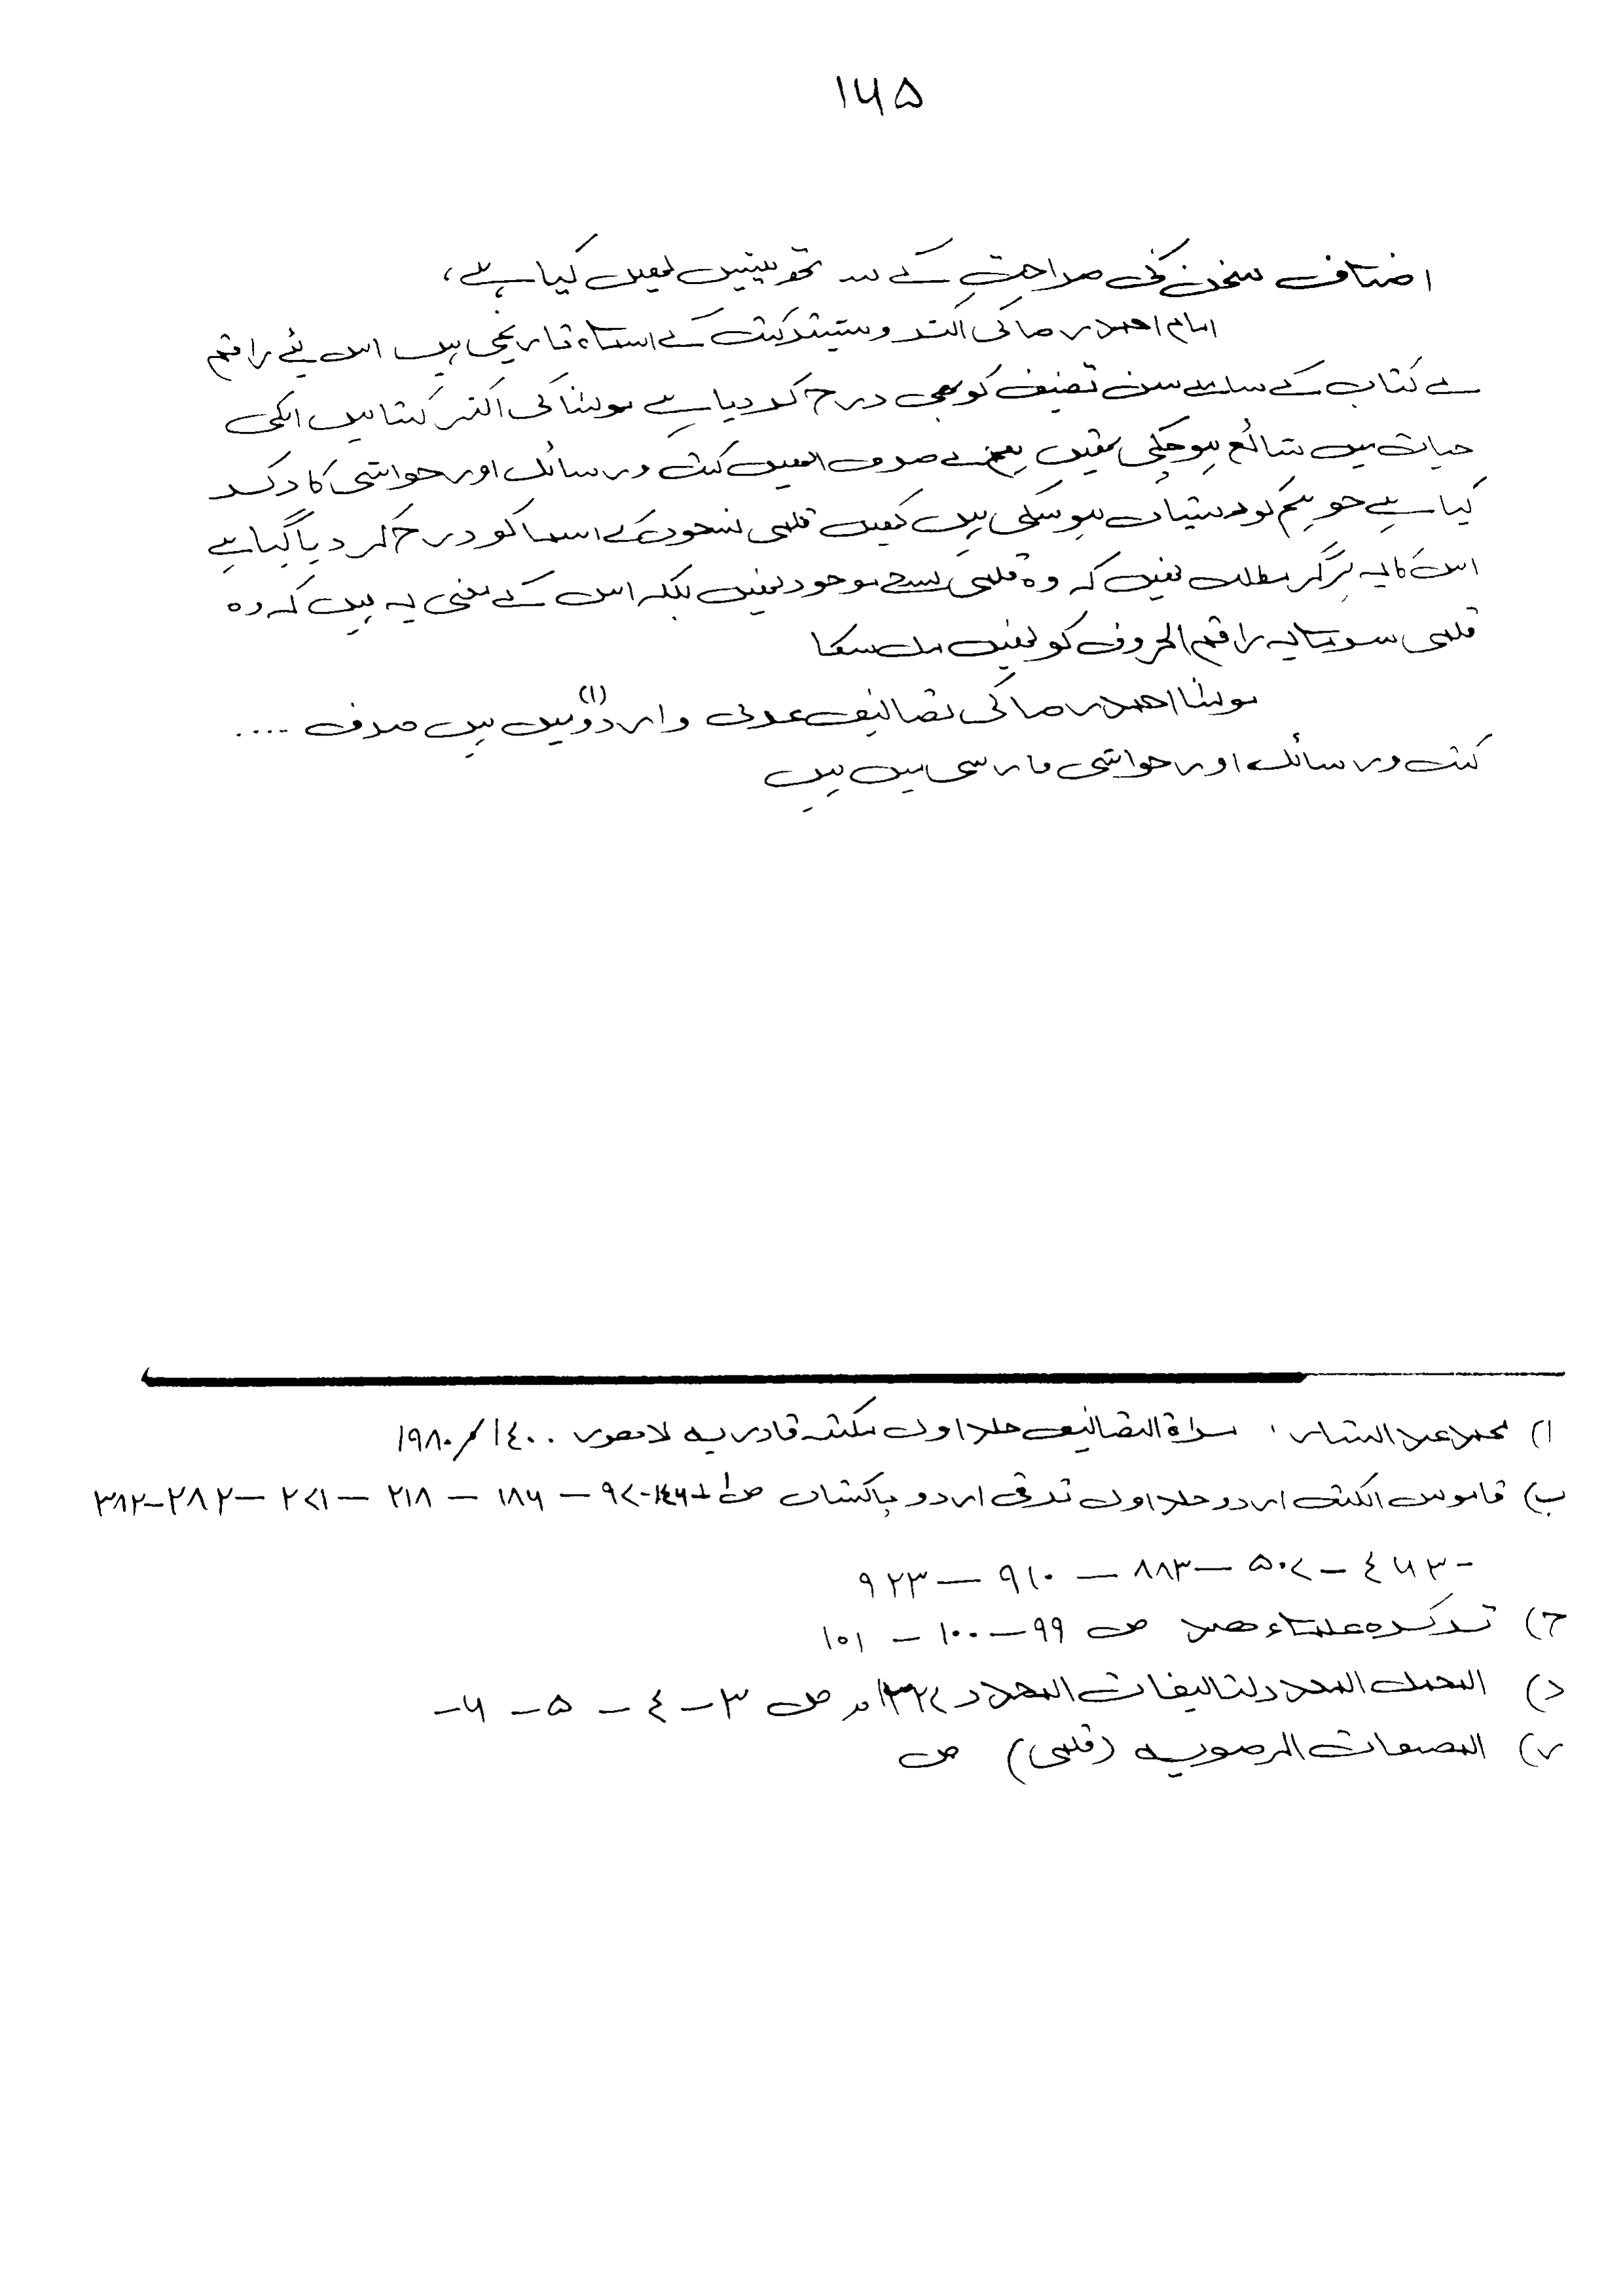 ۱۶۵
اصناف سخن کی صراحت کے تحت نہیں کیا ہے،
امام احمد رضا کی اکثر و بیشتر کتب کے اسماء تاریخی ہیں اس لئے راقم
نے کتاب کے سامنے سن تصنیف کو بھی درج کر دیا ہے مولٰنا کی اکثر کتابیں انکی
حیات میں شائع ہو چکی تھیں ہم نے صرف انھیں کتب و رسائل اور حواشی کا ذکر
کیا ہے جو ہم کو دستیاب ہو سکی ہیں کہیں قلمی نسخوں کے اسما کو درج کر دیا گیا ہے
اس کا یہ ہرگز مطلب نہیں کہ وہ قلمی نسخے موجود نہیں بلکہ اس کے معنی یہ ہیں کہ وہ
قلمی سرمایہ راقم الحروف کو نہیں مل سکا
مولٰنا احمد رضا کی تصانیف عربی و اردو (۱) میں ہیں صرف ....
کتب و رسائل اور حواشی فارسی میں ہیں
ا) محمد عبد الستار، مراۃ التصانیف جلد اول مکتبہ قادریہ لاھور ۱٤۰۰ھ/۱۹۸۰
ب) قاموس الکتب اردو جلد اول ترقی اردو پاکستان ص ۹۷ – ۱۸۶ – ۲۱۸ – ۲۷۱ – ۲۸۲ – ۳۸۲
– ٤۶۳ – ۵۰۷ – ۸۸۳ – ۹۱۰ – ۹۲۳
ج) تذکرہ علماء ھند ص ۹۹ – ۱۰۰ – ۱۰۱
د) المجمل المعدد لتالیفات المجدد ۱۳۲۷ھ ص ۳ – ٤ – ۵ – ۶ –
ر) المصنفات الرضویہ (قلمی) ص